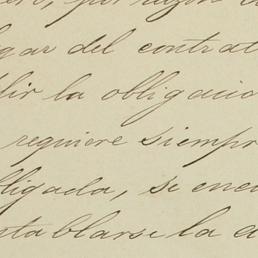 por razon
lugar del contrat
plir la obligacio
requiere siempr
bligada, se encu
ntablarse la a